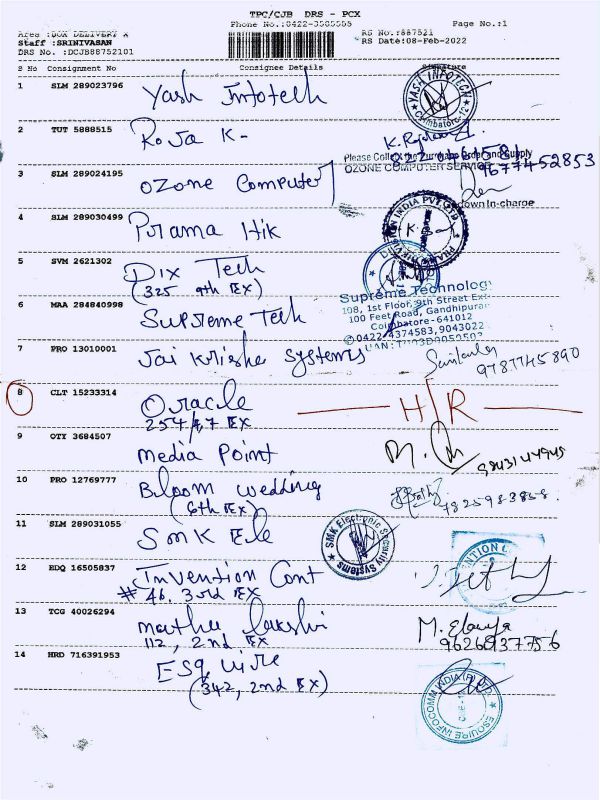 TPC/CJB DRS - PCX
Phone No.:0422-3505555 Page No.:1
Area :BOX DELIVERY A RS No.:887521
Staff :SRINIVASAN RS Date:08-Feb-2022
DRS No. :DCJB88752101
S No Consignment No Consignee Details Signature
1 SLM 289023796 Yash Infotech YASH INFOTECH Coimbatore-12
2 TUT 5888515 Roja K-
Please Collect and Supply
3 SLM 289024195 Ozone Computer OZONE COMPUTER SERVICE 9677452853
down In-charge
4 SLM 289030499 Prama Hik INDIA PVT LTD
5 SVM 2621302 Dix Tech
(325 9th EX)
Supreme Technology
108, 1st Floor, 9th Street Ext
6 MAA 284840998 Supreme Tech 100 Feet Road, Gandhipuram
Coimbatore-641012
0422-4374583, 9043022
7 PRO 13010001 Jai Krishe Systems 9787745890
8 CLT 15233314 Oracle H/R
254/47 EX
9 OTY 3684507 Media Point
10 PRO 12769777 Bloom wedding
(6th EX)
11 SLM 289031055 SMK Ele SMK Electronic Security Systems
12 EDQ 16505837 Invention Cont
#46, 3rd EX
13 TCG 40026294 Mathu Lakshi M.
112, 2nd EX
14 HRD 716391953 Esquire
(342, 2nd EX) ESQUIRE INFOCOMM INDIA (P) LTD